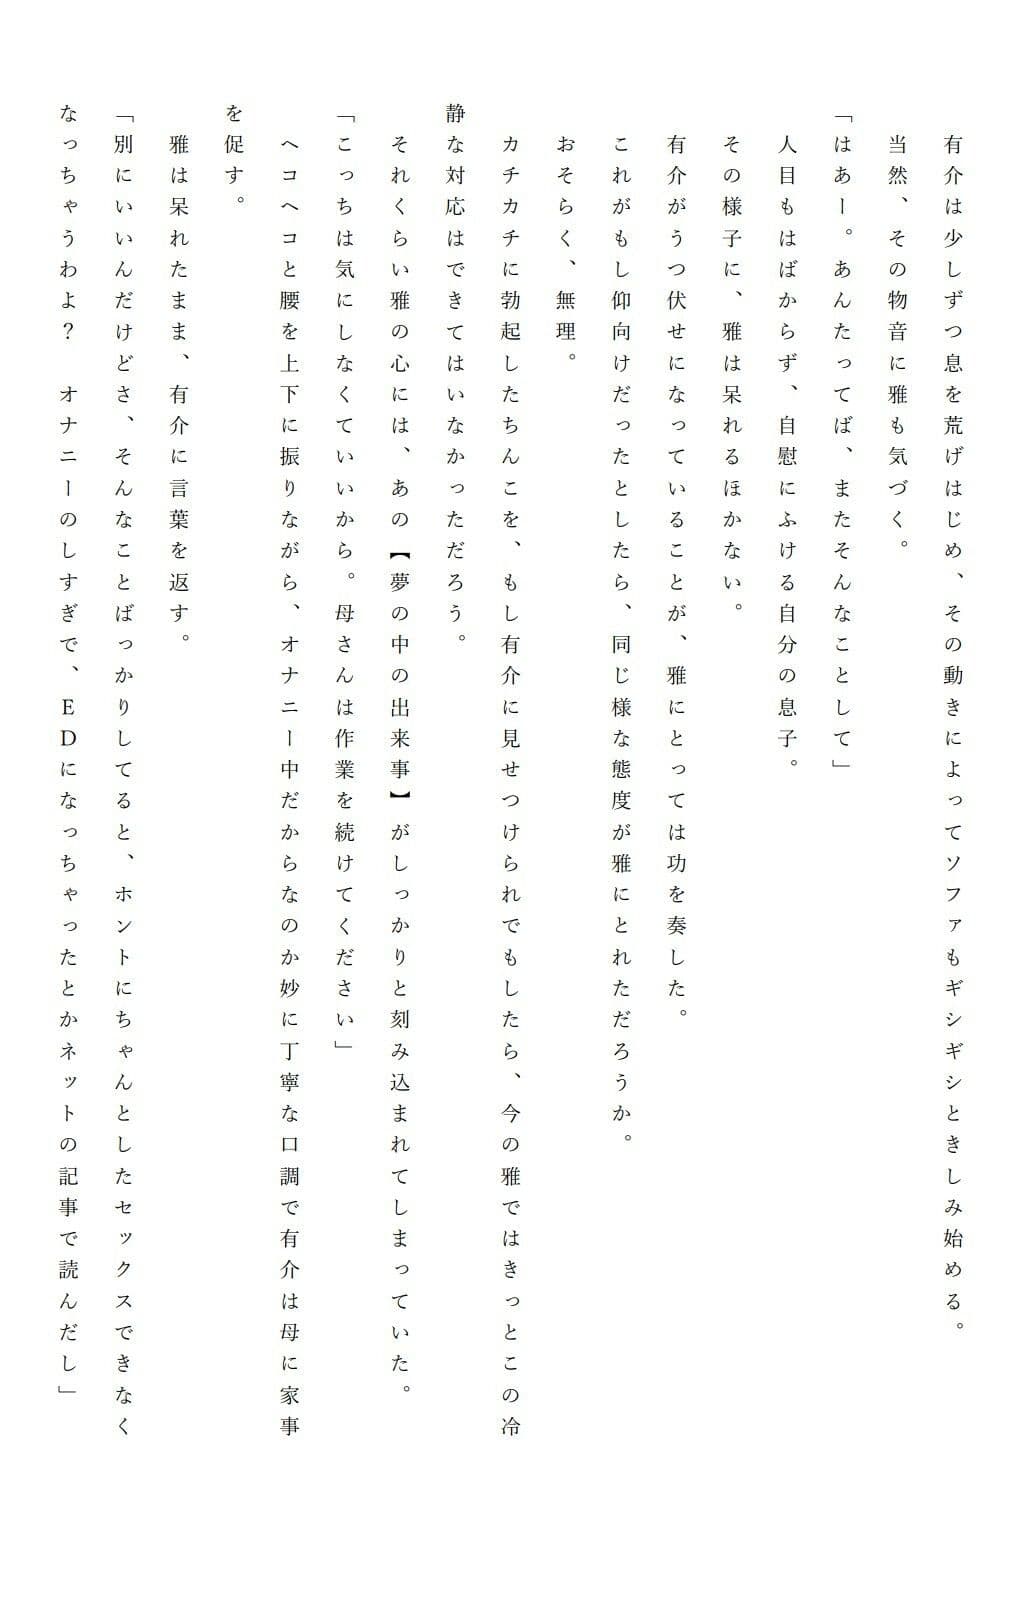 有介は少しずつ息を荒げはじめ、その動きによってソファもギシギシときしみ始める。
当然、その物音に雅も気づく。
「はあー。あんたってば、またそんなことして」
人目もはばからず、自慰にふける自分の息子。
その様子に、雅は呆れるほかない。
有介がうつ伏せになっていることが、雅にとっては功を奏した。
これがもし仰向けだったとしたら、同じ様な態度が雅にとれただろうか。
おそらく、無理。
カチカチに勃起したちんこを、もし有介に見せつけられでもしたら、今の雅ではきっとこの冷
静な対応はできてはいなかっただろう。
それくらい雅の心には、あの【夢の中の出来事】がしっかりと刻み込まれてしまっていた。
「こっちは気にしなくていいから。母さんは作業を続けてください」
ヘコヘコと腰を上下に振りながら、オナニー中だからなのか妙に丁寧な口調で有介は母に家事
を促す。
雅は呆れたまま、有介に言葉を返す。
「別にいいんだけどさ、そんなことばっかりしてると、ホントにちゃんとしたセックスできなく
なっちゃうわよ？　オナニーのしすぎで、ＥＤになっちゃったとかネットの記事で読んだし」